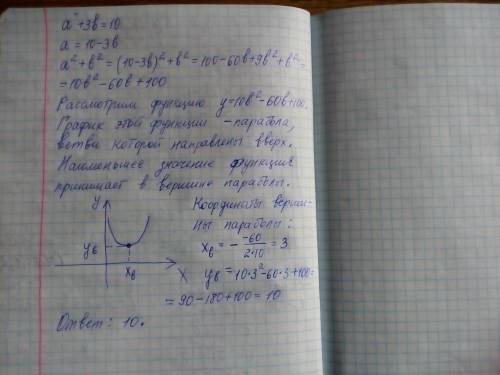 a + 3в = 10
a = 10 - 3в
a² + в² = (10-3в)² + в² = 100 - 60в + 9в² + в² =
= 10в² - 60в + 100
Рассмотрим функцию y = 10в² - 60в + 100.
График этой функции - парабола,
ветви которой направлены вверх.
Наименьшее значение функция
принимает в вершине параболы.
y
yв
xв
x
Координаты верши-
ны параболы:
xв = - -60/2·10 = 3
yв = 10·3² - 60·3 + 100 =
= 90 - 180 + 100 = 10
Ответ: 10.